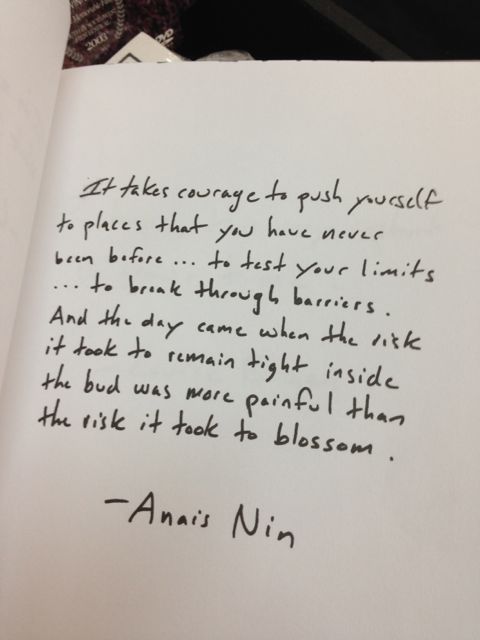 2007
DVD
It takes courage to push yourself
to places that you have never
been before... to test your limits
... to break through barriers.
And the day came when the risk
it took to remain tight inside
the bud was more painful than
the risk it took to blossom.
-Anais Nin